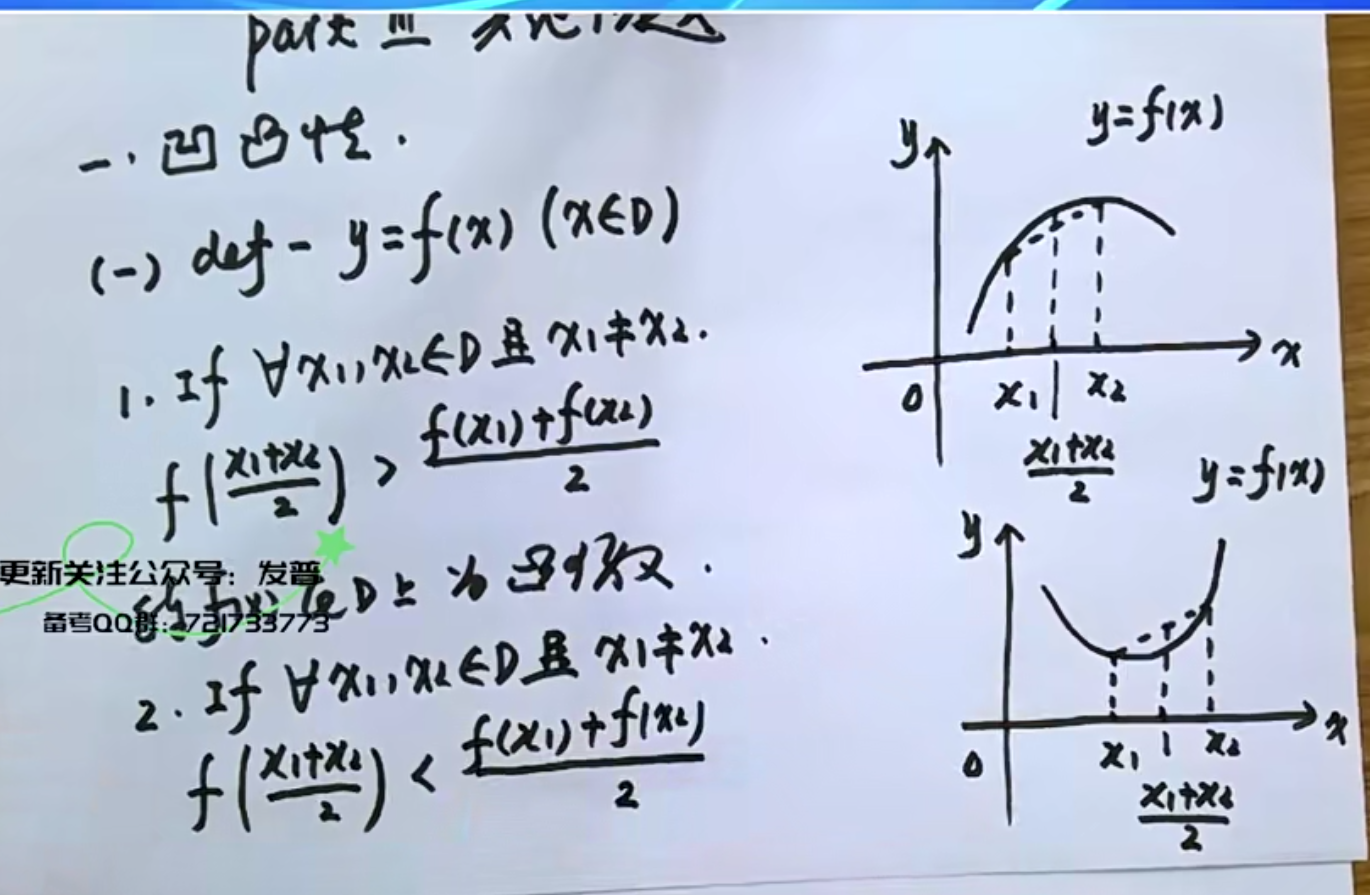 part III
一. 凹凸性.
(一) def - y=f(x) (x∈D)
1. If ∀x₁,x₂∈D且x₁≠x₂.
f((x₁+x₂)/2) > (f(x₁)+f(x₂))/2
更新关注公众号：发普
备考QQ群：721733773
D上为凸函数.
2. If ∀x₁,x₂∈D且x₁≠x₂.
f((x₁+x₂)/2) < (f(x₁)+f(x₂))/2
y=f(x)
y
x
0
x₁
x₂
(x₁+x₂)/2
y=f(x)
y
x
0
x₁
x₂
(x₁+x₂)/2